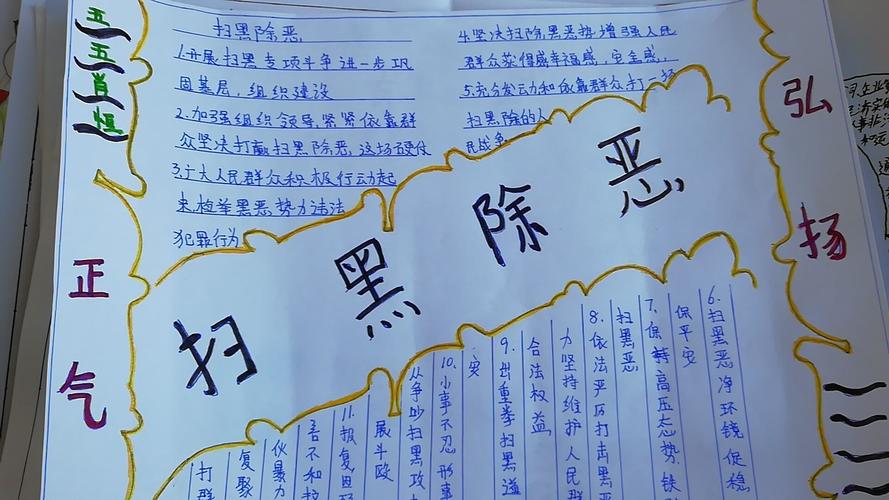 五五肖恒
正气
弘扬
扫黑除恶
1.开展扫黑专项斗争进一步巩
固基层，组织建设
2.加强组织领导，紧紧依靠群
众坚决打赢扫黑除恶，这场硬仗
3.广大人民群众积极行动起
来，检举黑恶势力违法
犯罪行为
4.坚决扫除黑恶势增强人民
群众获得感幸福感，安全感，
5.充分发动和依靠群众打一场
扫黑除的人
民战争
扫黑除恶
6.扫黑恶净环镜促稳
保平安
7.保持高压态势
扫黑恶
8.依法严厉打击黑恶
力坚持维护人民群
合法权益
9.出重拳扫黑
安
10.小事不忍形事
从争吵扫黑攻
展斗殴
11.报复
吾不和
伙暴力
复聚
打群